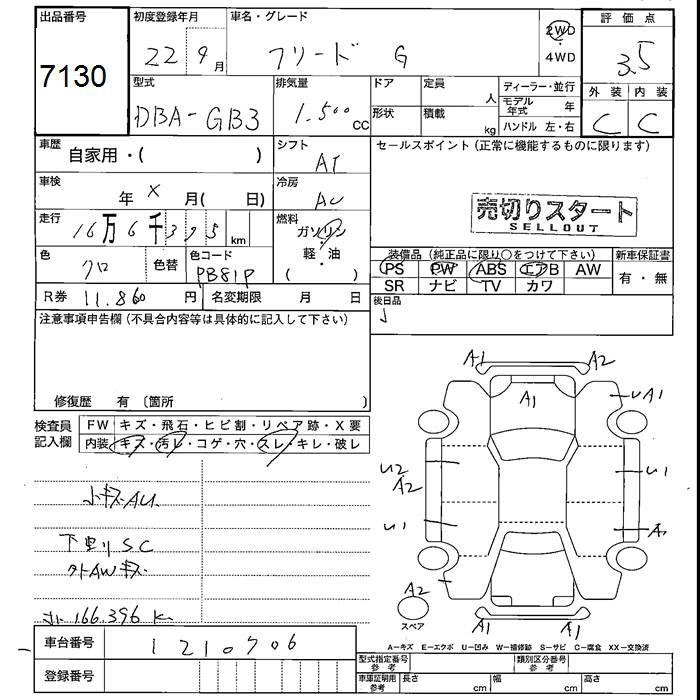 出品番号
7130
初度登録年月
22 9月
車名・グレード
フリード G
2WD
・
4WD
評価点
3.5
外装 内装
C C
型式
DBA-GB3
排気量
1.500cc
ドア
形状
定員 人
積載 kg
ディーラー・並行
モデル年式 年
ハンドル 左・右
車歴
自家用・( )
シフト
AT
セールスポイント (正常に機能するものに限ります)
売切りスタート
SELLOUT
車検
年 X 月( 日)
冷房
AC
走行
16万6千395km
燃料
ガソリン
軽・油
( )
色
クロ
色替
色コード
PB81P
装備品 (純正品に限り○をつけて下さい)
PS PW ABS エアB AW
SR ナビ TV カワ
新車保証書
有・無
R券 11.860円
名変期限 月 日
後日品
注意事項申告欄 (不具合内容等は具体的に記入して下さい)
修復歴 有 〔箇所 〕
検査員
記入欄
FW キズ・飛石・ヒビ割・リペア跡・X要
内装 キズ・汚レ・コゲ・穴・スレ・キレ・破レ
小キズAU
下廻りSC
外AWキズ
166.396K
A1 A2
A1
UA1
U2
A2
U1
U1
A1
A2
スペア
A1 A1
A-キズ E-エクボ U-凹み W-補修跡 S-サビ C-腐食 XX-交換済
車台番号
1210706
登録番号
型式指定番号
参考
類別区分番号
参考
車庫証明用
参考
長さ cm
幅 cm
高さ cm